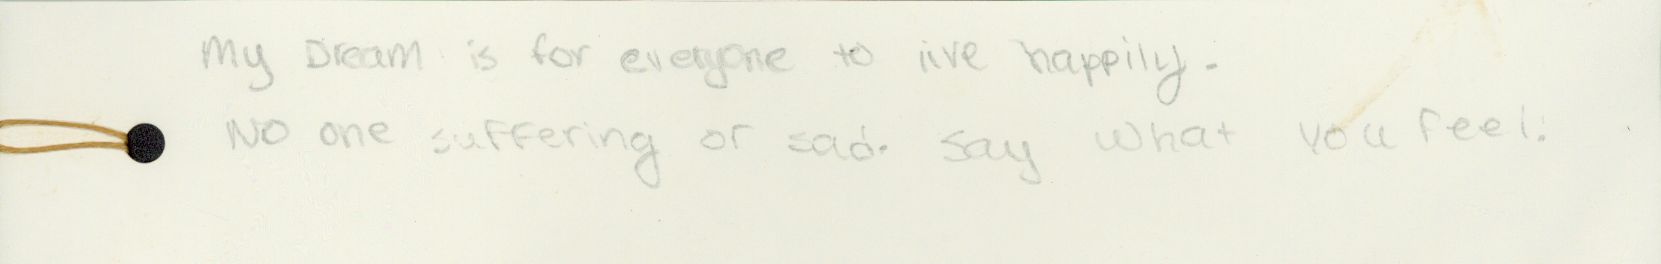 My Dream is for everyone to live happily.
No one suffering or sad. Say what you feel.